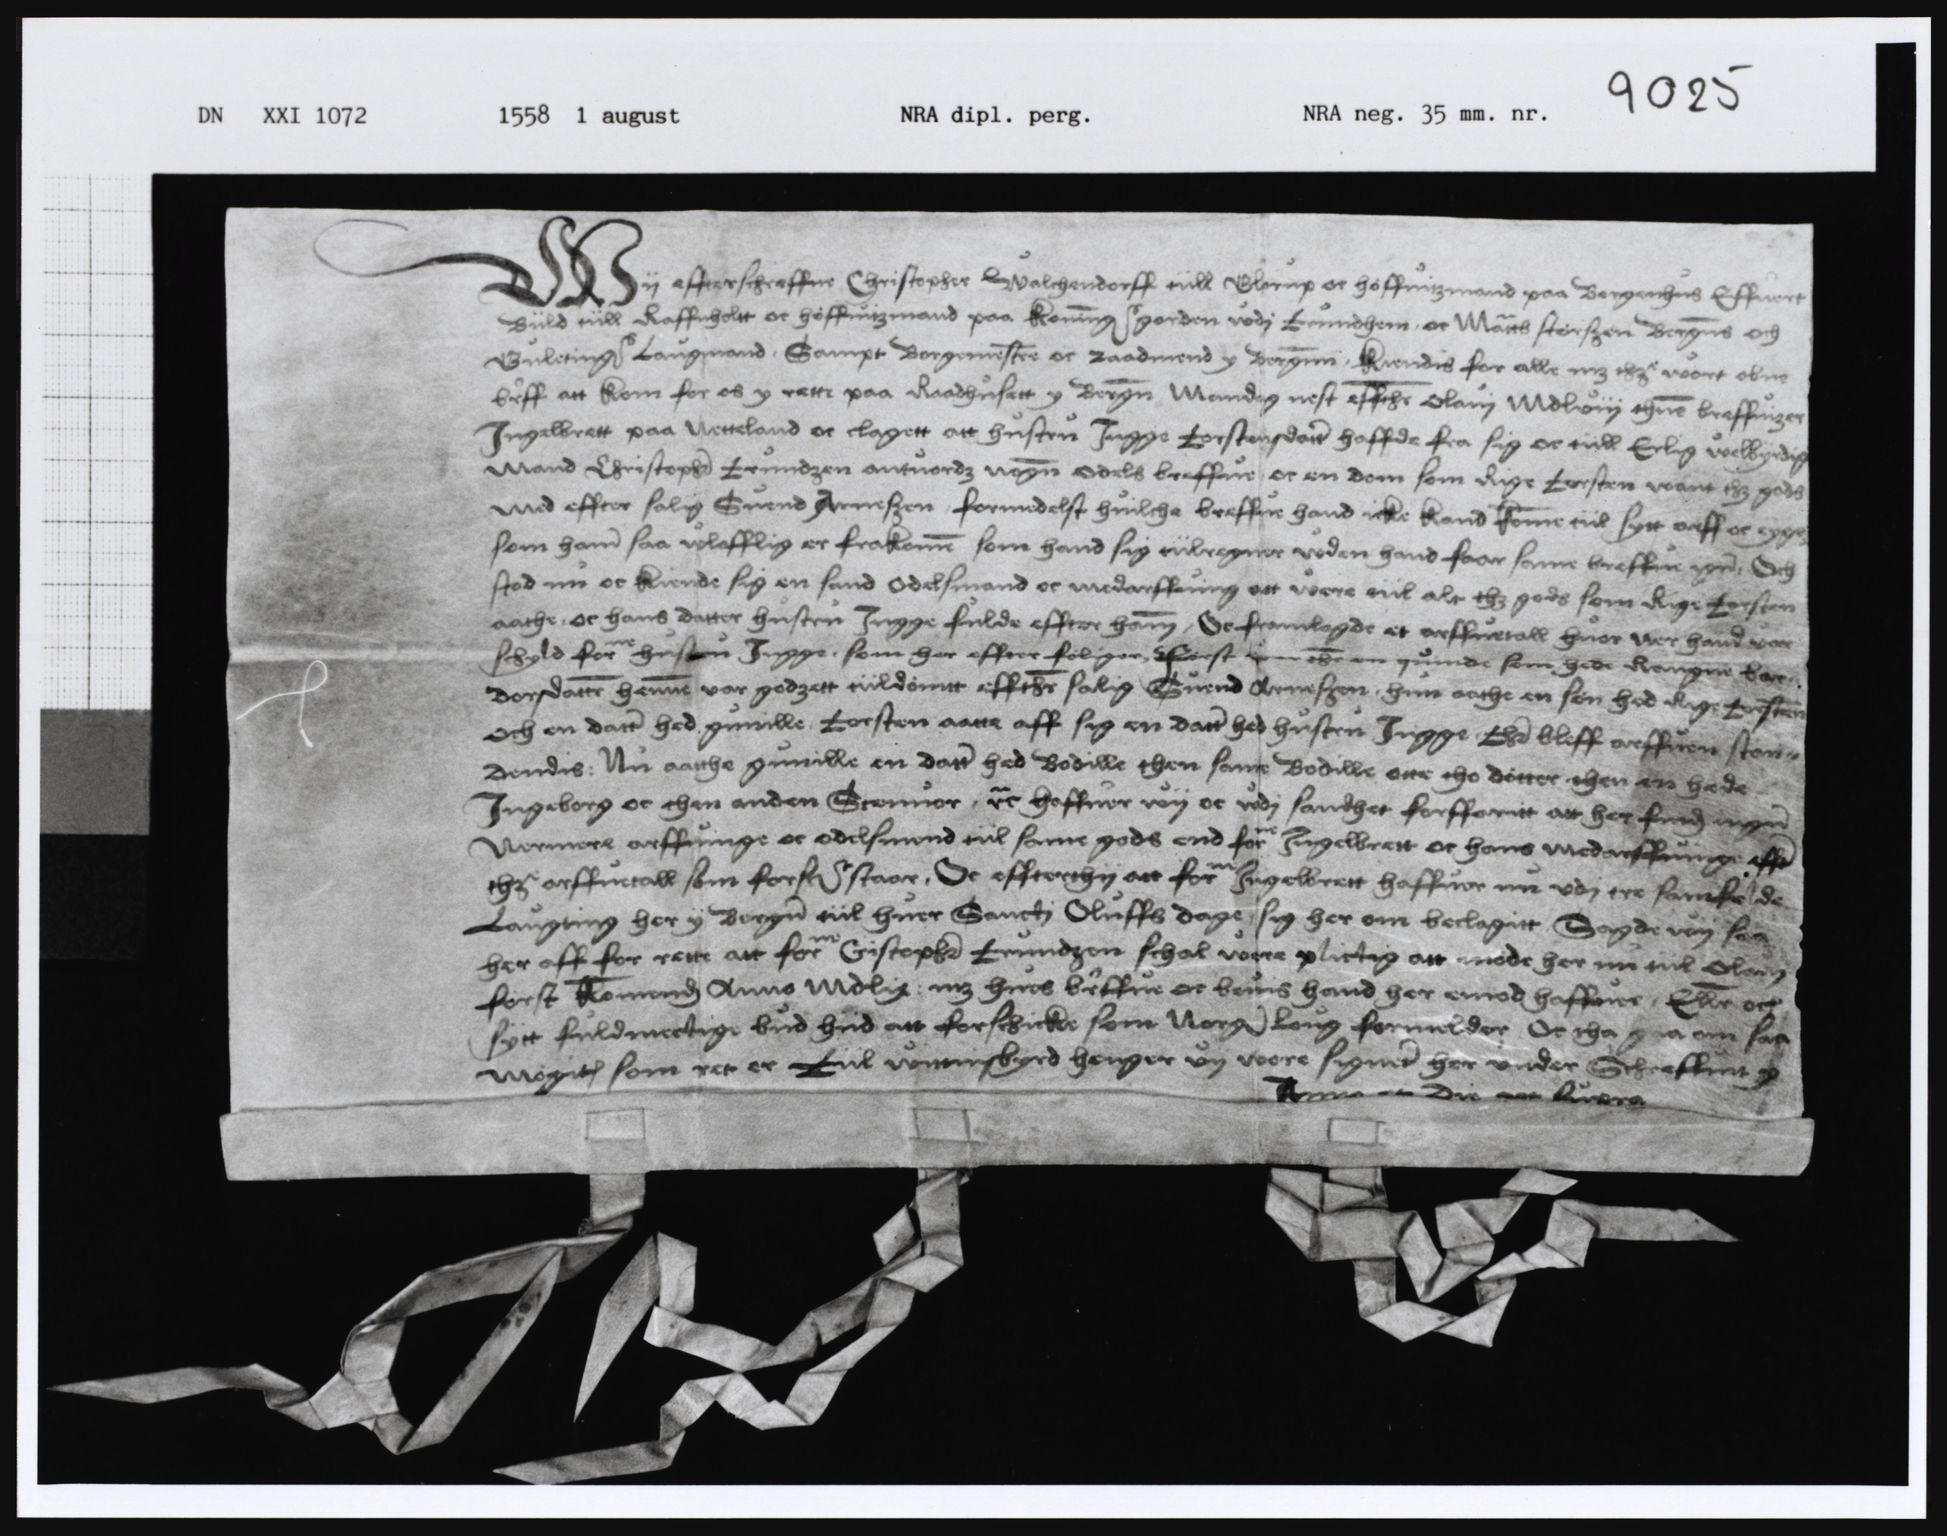 DN XXI 1072 1558 1 august NRA dipl. perg. NRA neg. 35 mm. nr. 9025
Wii effterschreffne Christopher Walchendorff tiill Glorup oc höffuitzmand paa Bergenhus Effuert
Biild tiill Raffnholtt oc höffuitzmand paa Koningsgorden vdj Trundhem, oc Mattls störszen Bergens och
Guletings Laugmand, Sampt Borgemestre oc Raadmend y Bergenn, Kiendis for alle mz thz vort obne
breff att kom for os y rette paa Raadhusett y Bergen Mandag nest effther Olauj Mdlviij thenne breffuizer
Ingelbrett paa Netteland oc clagett att hustru Ingge Torstensdatter haffde fra sig oc tiill Erlig velbyrdig
Mand Christopher Trundzen antuordz nogen odels breffue, oc en dom som Rige Torsten vant thz gods
med effter salig Suend Arneszen, formedelst huilche breffue hand icke kand kome tiil sytt arff oc eyge,
som hanem saa vlafflig er frakomen som hand sig tiilregner vden hand faar same breffue igen, Och
stod nu oc kiende sig en sand odelsmand oc medarffuing att vere tiil alt thz gods som Rige Torsten
aathe, oc hans datter hustru Ingge fulde effter ham, Oc framlagde et arffuetall huor ner hand var
schyld forne hustru Ingge, som her effter fölger, Först en quinde som hede Rangne bar
dorsdatter henne var godzett tiildömtt effther salig Suend Arneszen, hun aathe en sön hed Rige Torsten
och en datter hed gunille, Torsten aatte aff sig en datter hed hustru Ingge, Ther bleff arffuen stan-
dendis: Nu aatthe gunille en datter hed Bodille then same Bodille otte tho dötter, then en hede
Ingeborg oc then anden Stenuor, etc haffuer vij oc vdj sandhet forffaritt att her finds ingen
Nermere arffuinge oc odelsmend tiil same gods end forne Ingelbrett oc hans medarffuinge efft
thz arffuetall som forscr staar, Oc effterthij att forne Ingelbrett haffuer nu vdj tre samfelde
Laugting her ÿ Bergen tiil huer Sancti Oluffs dage, sig her om beclagitt Sagde vij saa
her aff for rette att forne Cistopher Trundzen schal vere plictig att möde her nu tiil Olauj
först komends Anno Mdlix, mz hues breffue oc beuis hand her emod haffuer, Eller oc
sytt fuldmectige bud hiid att forschicke som Norges Loug formelder Oc tha gaa om saa
mögitt som ret er Tiil vittnesbyrd henger vij vore signeter her under Schreffuit y
Anno et Die vt supra